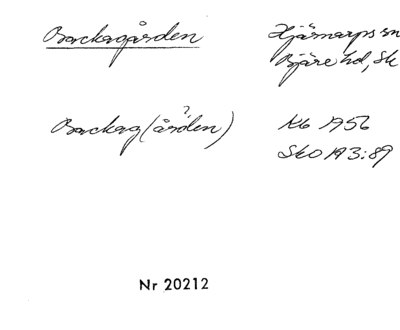 Backagården Hjärnarps sn
Bjäre hd, Sk
?
Backag(ården) Kb 1956
SkO 193:89
Nr 20212